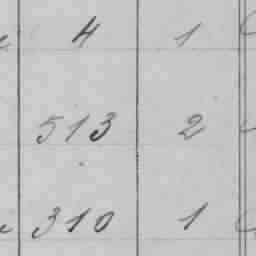 4 1
513 2
310 1